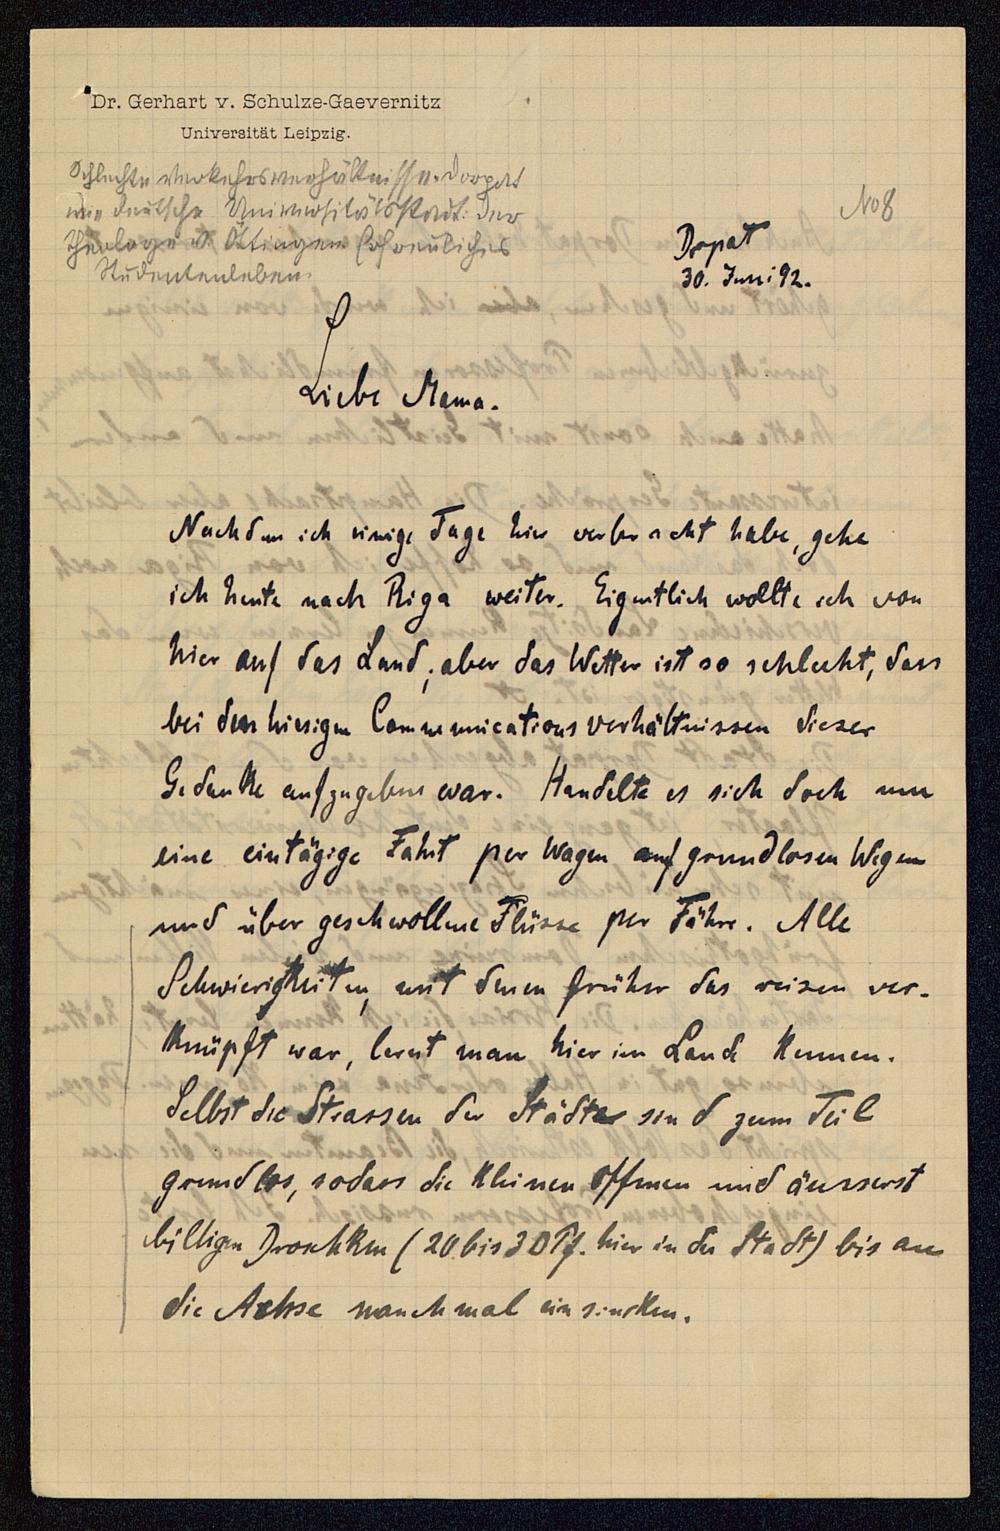 Dr. Gerhart v. Schulze-Gaevernitz
Universität Leipzig.
Schlechte Verkehrsverhältnisse. Dorpat
eine deutsche Universitätsstadt. Der
Theologe v. Öttingen. Erfreuliches
Studentenleben.
No 8
Dorpat
30. Juni 92.
Liebe Mama.
Nachdem ich einige Tage hier verbracht habe, gehe
ich heute nach Riga weiter. Eigentlich wollte ich von
hier auf das Land, aber das Wetter ist so schlecht, dass
bei den hiesigen Communicationsverhältnissen dieser
Gedanke aufzugeben war. Handelte es sich doch um
eine eintägige Fahrt per Wagen auf grundlosen Wegen
und über geschwollene Flüsse per Fähre. Alle
Schwierigkeiten, mit denen früher das reisen ver-
knüpft war, lernt man hier im Lande kennen.
Selbst die Strassen der Städte sind zum Teil
grundlos, sodass die kleinen offenen und äusserst
billigen Droschken (20 bis 30 Pf. hier in der Stadt) bis an
die Achse manchmal einsinken.